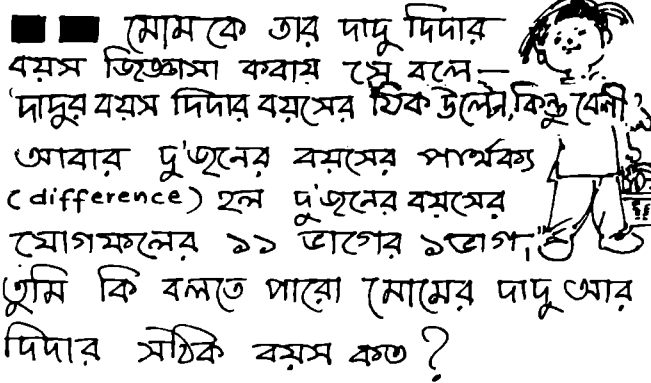 মোমকে তার দাদু দিদার
বয়স জিজ্ঞাসা করায় সে বলে—
'দাদুর বয়স দিদার বয়সের ঠিক উল্টো, কিন্তু বেশী;
আবার দু'জনের বয়সের পার্থক্য
(difference) হল দু'জনের বয়সের
যোগফলের ১১ ভাগের ১ভাগ,"
তুমি কি বলতে পারো মোমের দাদু আর
দিদার সঠিক বয়স কত?